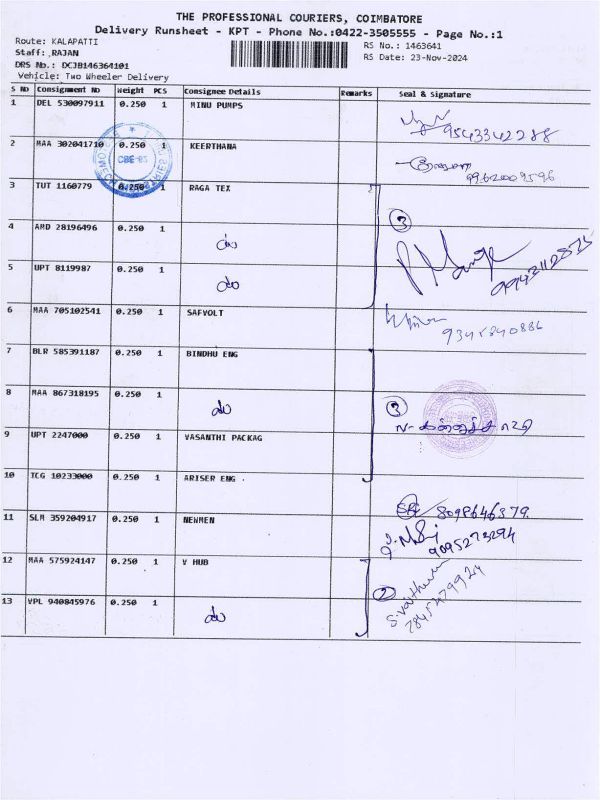 THE PROFESSIONAL COURIERS, COIMBATORE
Delivery Runsheet - KPT - Phone No.:0422-3505555 - Page No.:1
Route: KALAPATTI
Staff: ,RAJAN
DRS No.: DCJB146364101
Vehicle: Two Wheeler Delivery
RS No.: 1463641
RS Date: 23-Nov-2024
S No Consignment No Weight PCS Consignee Details Remarks Seal & Signature
1 DEL 530097911 0.250 1 MINU PUMPS 9543342288
2 MAA 302041710 0.250 1 KEERTHANA 9962009596
CBE-85
3 TUT 1160779 0.250 1 RAGA TEX
4 AMD 28196496 0.250 1 do 3
5 UPT 8119987 0.250 1 do
6 MAA 705102541 0.250 1 SAFVOLT 9345840886
7 BLR 585391187 0.250 1 BINDHU ENG
8 MAA 867318195 0.250 1 do 3
9 UPT 2247000 0.250 1 VASANTHI PACKAG
10 TCG 10233000 0.250 1 ARISER ENG . 8098646379
11 SLM 359204917 0.250 1 NEWMEN 9095273294
12 MAA 575924147 0.250 1 V HUB 2
13 VPL 940845976 0.250 1 do 7845279924